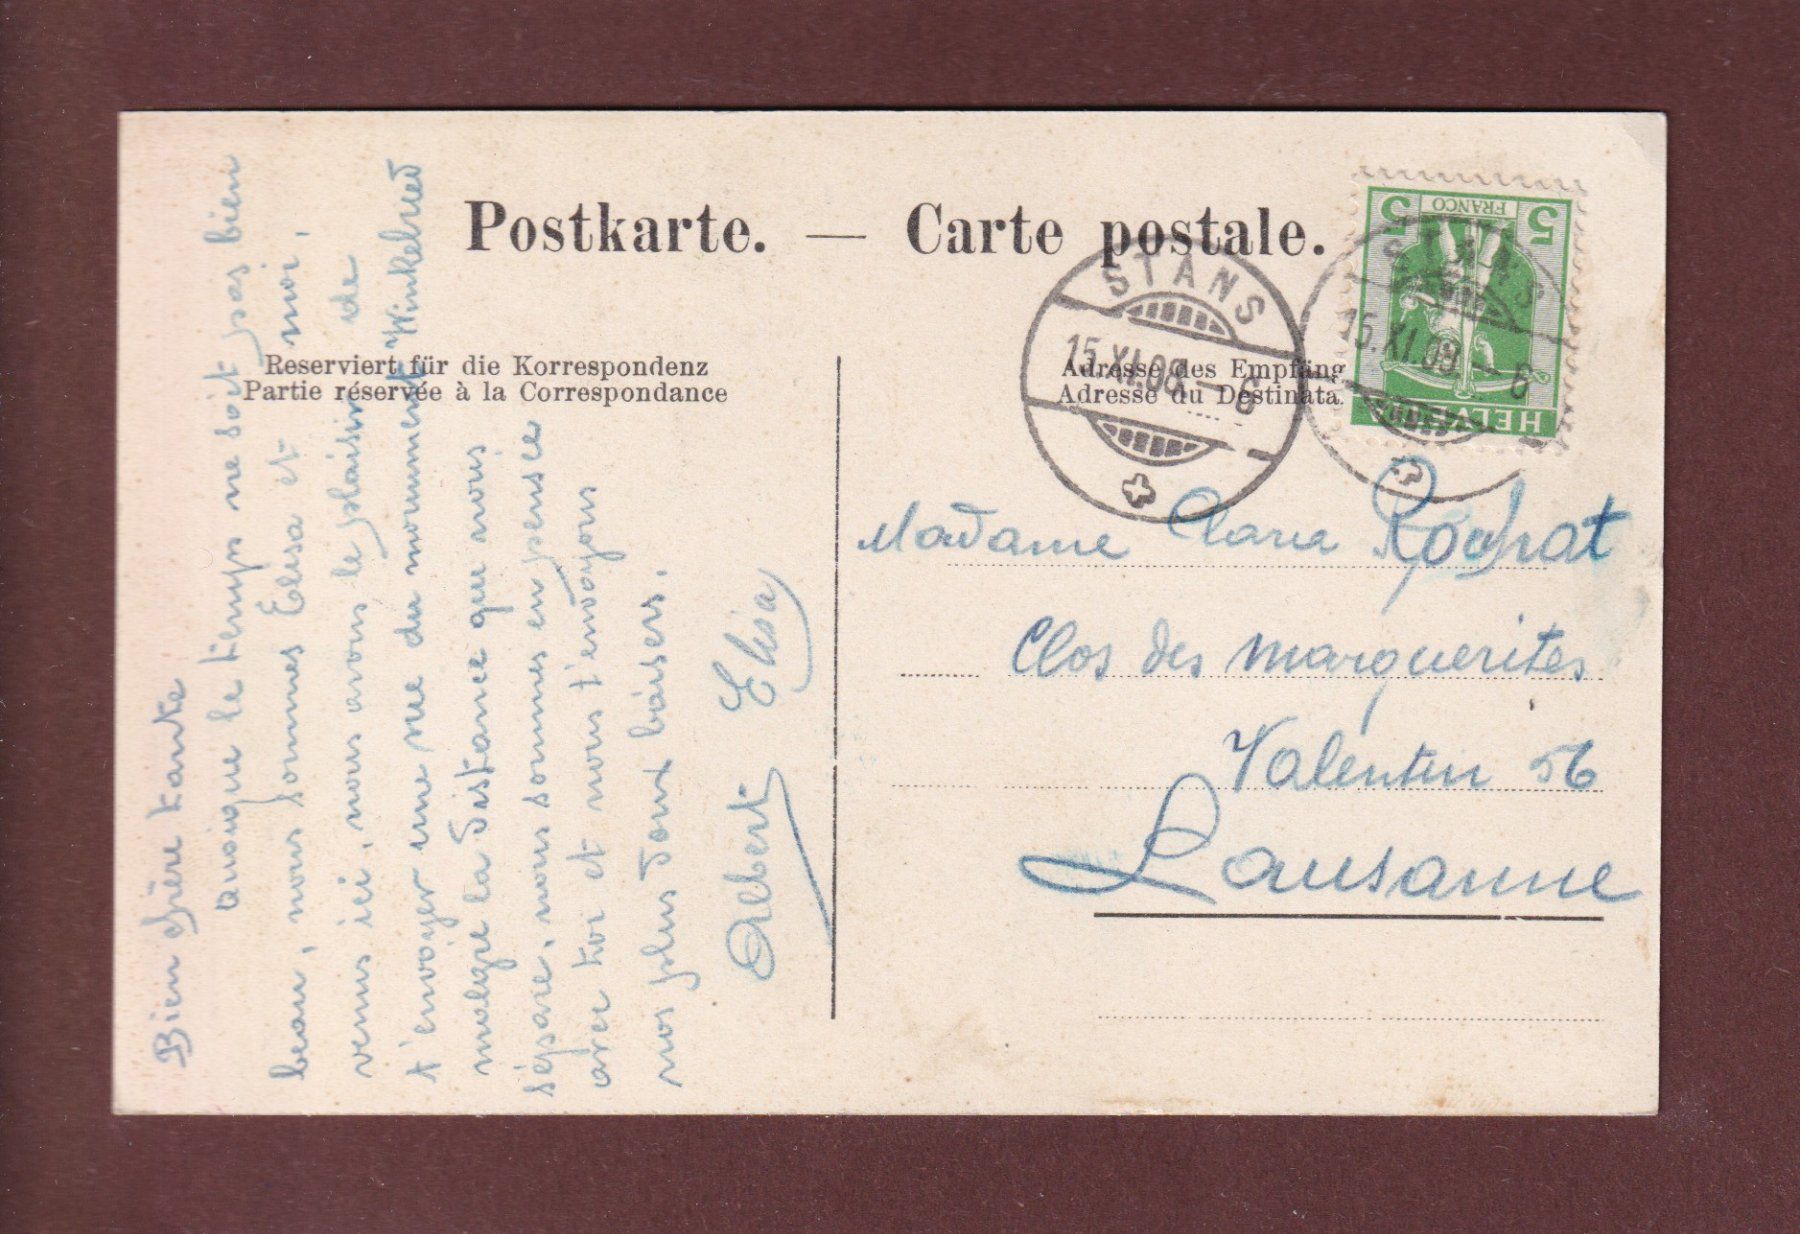 Postkarte. — Carte postale.
Reserviert für die Korrespondenz
Partie réservée à la Correspondance
Adresse des Empfäng
Adresse du Destinata
STANS
15.XI.08.–6
STANS
15.XI.08.–6
5 FRANCO 5
HELVETIA
Madame Clara Rochat
Clos des marguerites
Valentin 56
Lausanne
Bien chère tante
Quoique le temps ne soit pas bien
beau, nous sommes Elisa et moi,
venus ici, nous avons le plaisir de
t'envoyer une vue du monument Winkelried
malgré la distance que nous
sépare, nous sommes en pensée
avec toi et nous t'envoyons
nos plus doux baisers.
Albert Elisa